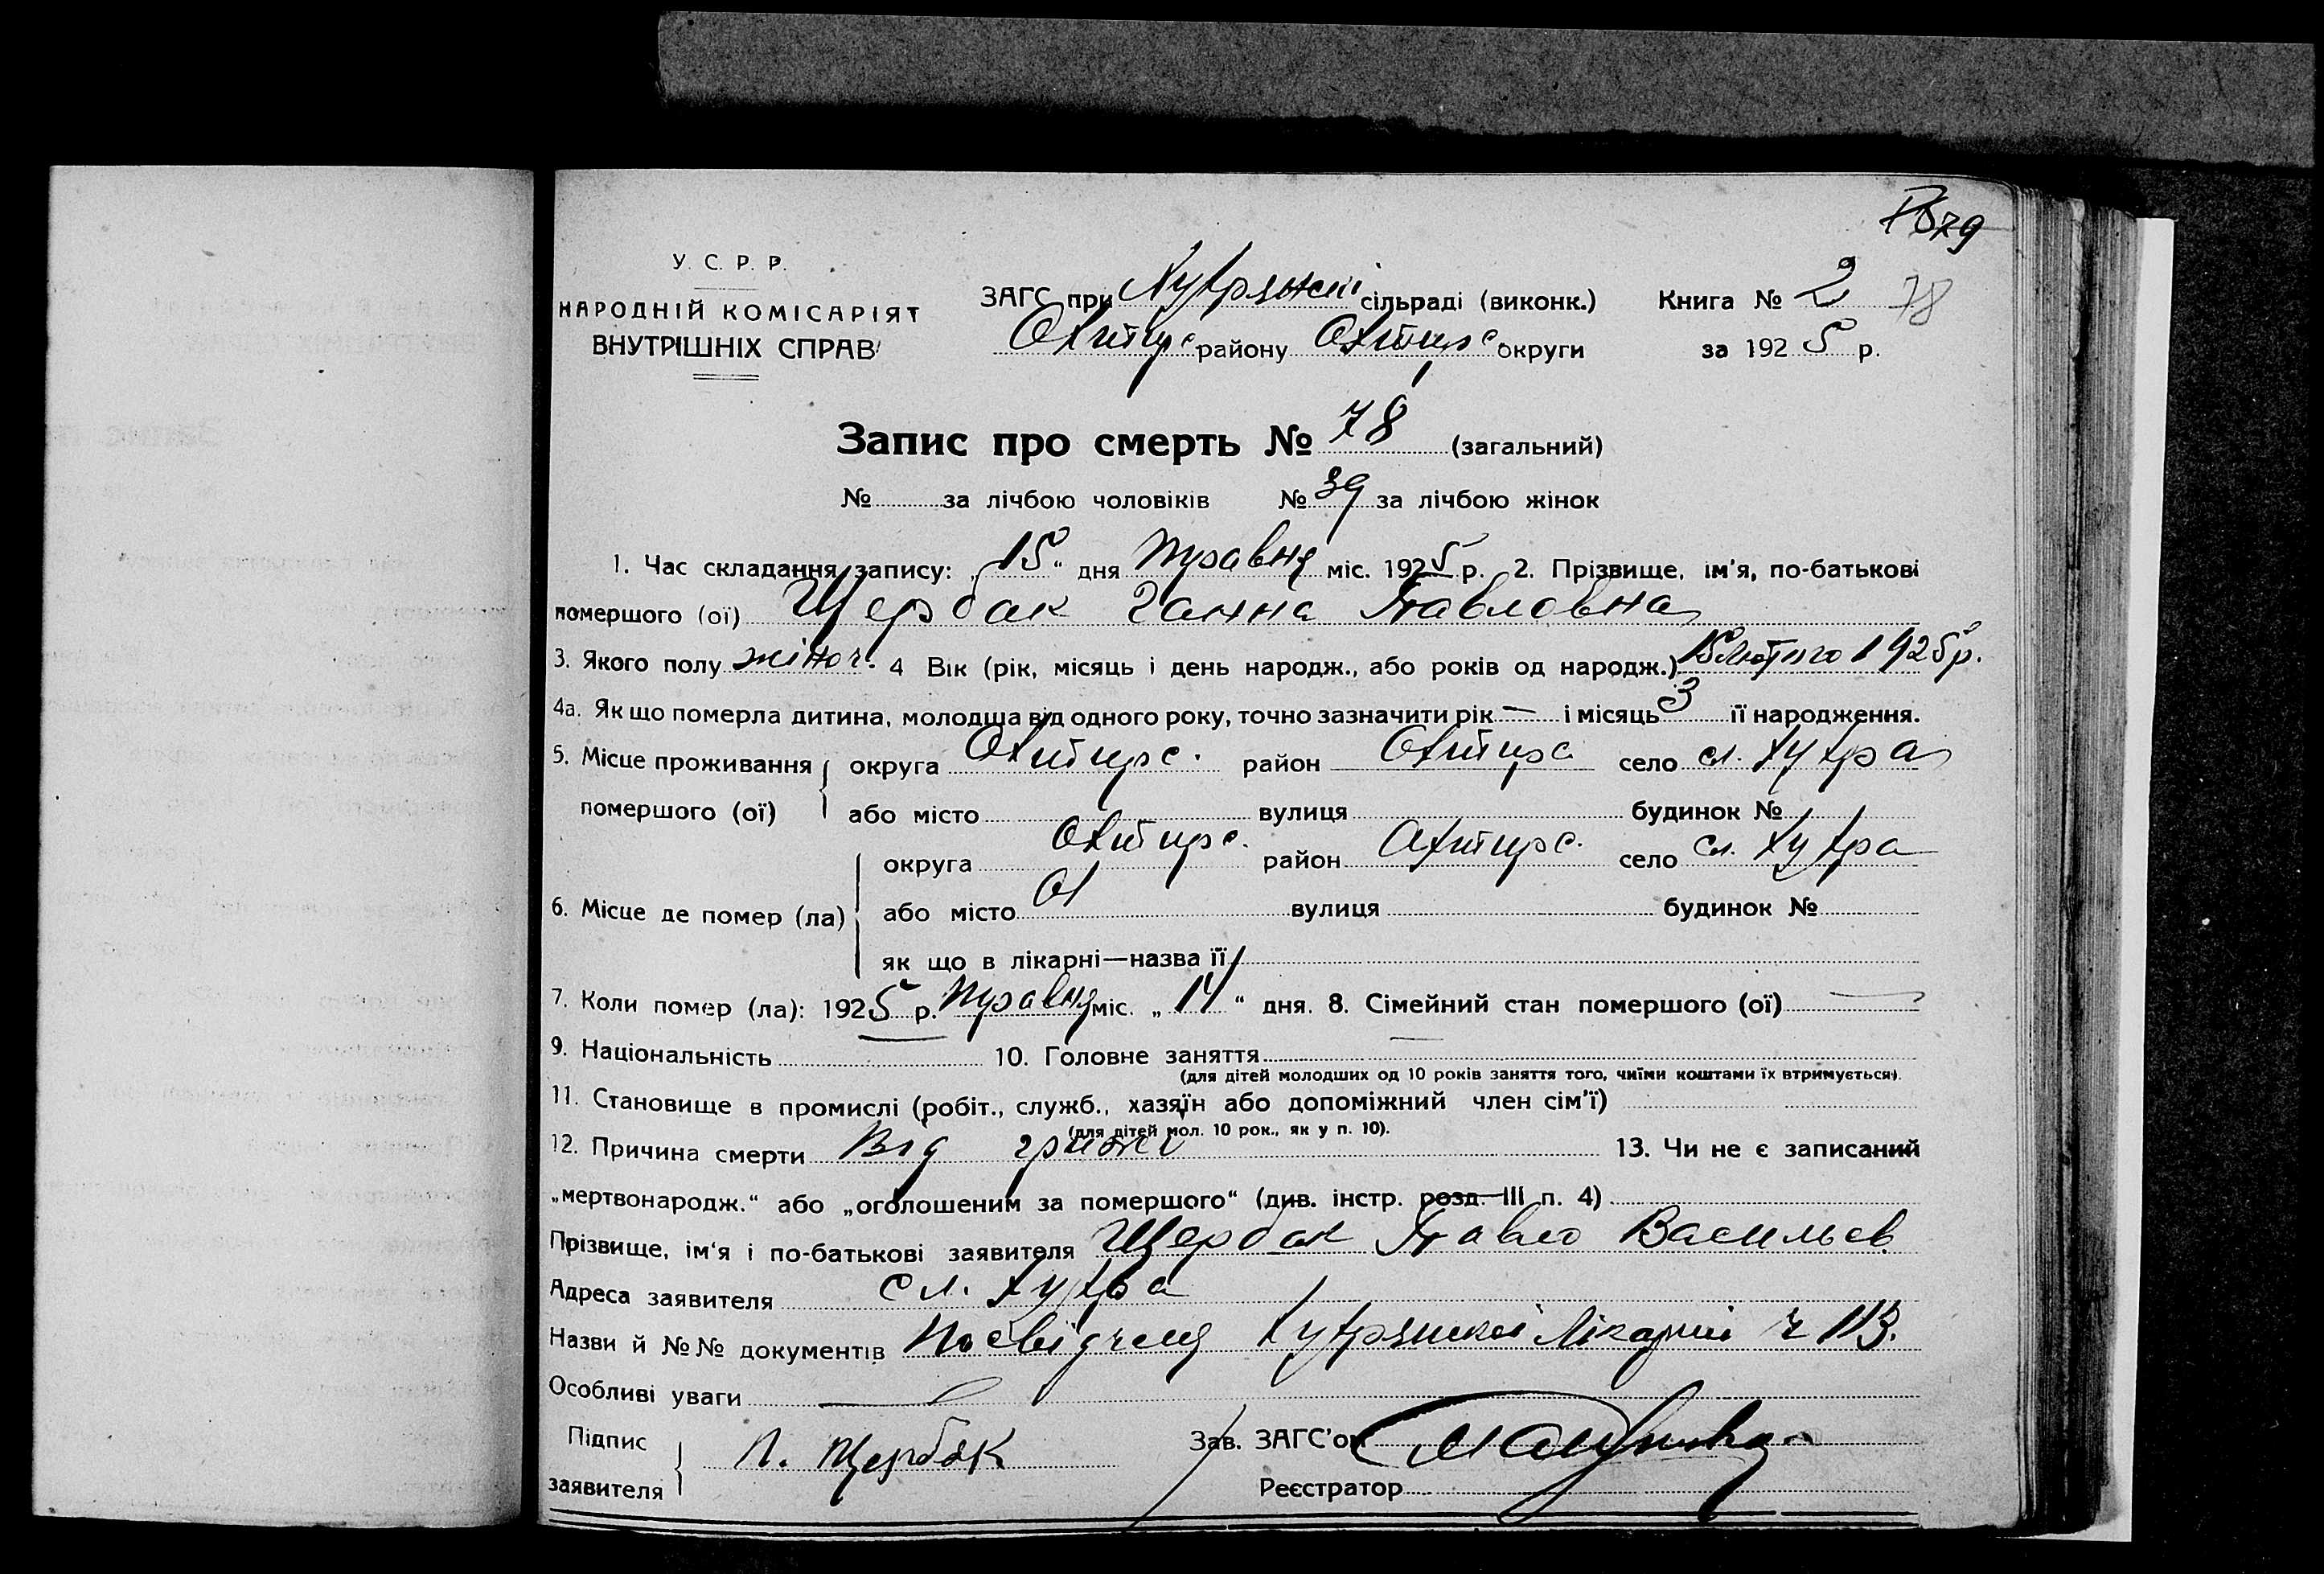 79
У. С. Р. Р.
НАРОДНІЙ КОМІСАРІЯТ
ВНУТРІШНІХ СПРАВ
ЗАГС при Хухрянскі сільраді (виконк.) Книга № 2 78
Охтирс району Охтирс округи за 1925 р.
Запис про смерть № 78 (загальний)
№ за лічбою чоловіків № 39 за лічбою жінок
1. Час складання запису: „15“ дня травня міс. 1925 р. 2. Прізвище, ім'я, по-батькові
помершого (ої) Щербак Ганна Павловна
3. Якого полу жіноч. 4 Вік (рік, місяць і день народж., або років од народж.) лютого 1925 р.
4а. Як що померла дитина, молодша від одного року, точно зазначити рік — і місяць 3 її народження.
5. Місце проживання округа Охтирс. район Охтирс село сл. Хухра
помершого (ої) або місто вулиця будинок №
округа Охтирс. район Охтирс. село сл. Хухра
6. Місце де помер (ла) або місто Ох вулиця будинок №
як що в лікарні—назва її
7. Коли помер (ла): 1925 р. травня міс. „14“ дня. 8. Сімейний стан помершого (ої) —
9. Національність — 10. Головне заняття —
(для дітей молодших од 10 років заняття того, чиїми коштами їх втримується).
11. Становище в промислі (робіт., служб., хазяїн або допоміжний член сім'ї)
(для дітей мол. 10 рок., як у п. 10).
12. Причина смерти Від грижі 13. Чи не є записаний
„мертвонародж.“ або „оголошеним за помершого“ (див. інстр. розд. III п. 4)
Прізвище, ім'я і по-батькові заявителя Щербак Павло Васильев.
Адреса заявителя сл. Хухра
Назви й №№ документів Посвідчення Хухрянскої Лікарні ч 113.
Особливі уваги —
Підпис
заявителя П. Щербак
Зав. ЗАГС'ом
Реєстратор